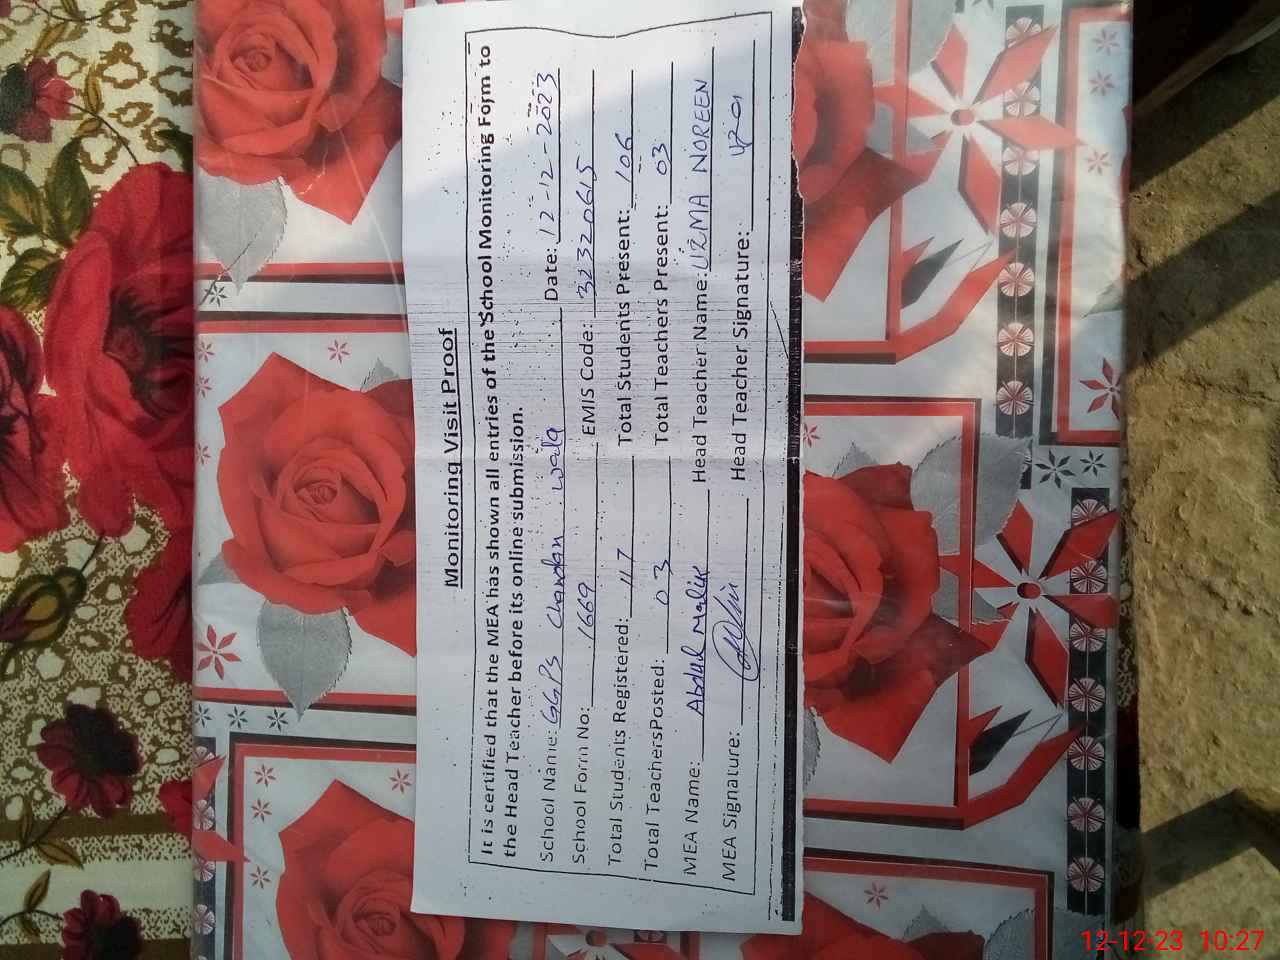 Monitoring Visit Proof
It is certified that the MEA has shown all entries of the School Monitoring Form to
the Head Teacher before its online submission.
School Name: GGPS Chandan wala Date: 12-12-2023
School Form No: 1669 EMIS Code: 32320615
Total Students Registered: 117 Total Students Present: 106
Total TeachersPosted: 03 Total Teachers Present: 03
MEA Name: Abdul Malik Head Teacher Name: UZMA NOREEN
MEA Signature: Head Teacher Signature:
12-12-23 10:27